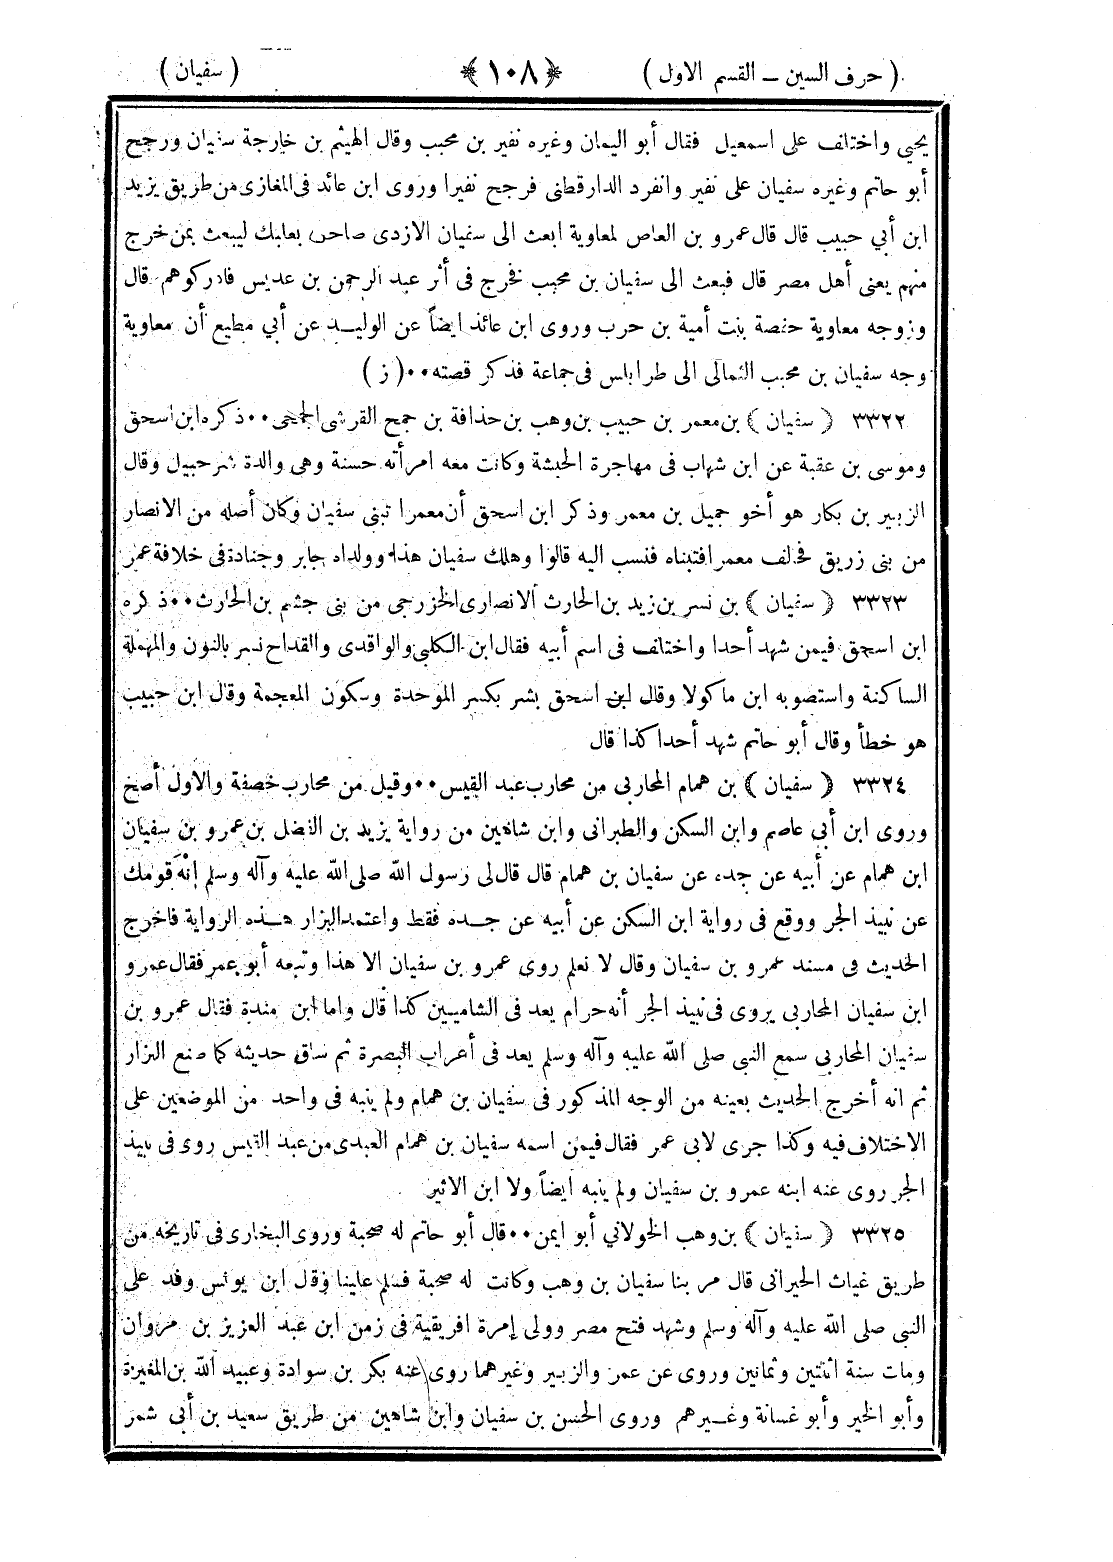 ( حرف السين – القسم الاول ) ﴿ ١٠٨ ﴾ ( سفيان )
يحيى واختلف على اسمعيل فقال أبو اليمان وغيره نفير بن مجيب وقال الهيثم بن خارجة سفيان ورجح
أبو حاتم وغيره سفيان على نفير وانفرد الدارقطنى فرجح نفيرا وروى ابن عائد فى المغازى من طريق يزيد
ابن أبي حبيب قال قال عمرو بن العاص لمعاوية ابعث الى سفيان الازدى صاحب بعلبك ليبعث بمن خرج
منهم يعنى أهل مصر قال فبعث الى سفيان بن مجيب فخرج فى أثر عبد الرحمن بن عديس فادركوهم قال
وزوجه معاوية حفصة بنت أمية بن حرب وروى ابن عائذ ايضاً عن الوليد عن أبي مطيع أن معاوية
وجه سفيان بن مجيب الثمالى الى طرابلس فى جماعة فذكر قصته ٠٠ ( ز )
٣٣٢٢ ﴿ سفيان ﴾ بن معمر بن حبيب بن وهب بن حذافة بن جمح القرشى الجمحى ٠٠ ذكره ابن اسحق
وموسى بن عقبة عن ابن شهاب فى مهاجرة الحبشة وكانت معه امرأته حسنة وهى والدة شرحبيل وقال
الزبير بن بكار هو أخو جميل بن معمر وذكر ابن اسحق أن معمرا تبنى سفيان وكان أصله من الانصار
من بنى زريق فحالف معمرا فتبناه فنسب اليه قالوا وهلك سفيان هذا وولداه جابر وجنادة فى خلافة عمر
٣٣٢٣ ﴿ سفيان ﴾ بن نسر بن زيد بن الحارث الانصارى الخزرجى من بنى جشم بن الحارث ٠٠ ذكره
ابن اسحق فيمن شهد أحدا واختلف فى اسم أبيه فقال ابن الكلبي والواقدى والقداح نسر بالنون والمهملة
الساكنة واستصوبه ابن ماكولا وقال ابن اسحق بشر بكسر الموحدة وسكون المعجمة وقال ابن حبيب
هو خطأ وقال أبو حاتم شهد أحدا كذا قال
٣٣٢٤ ﴿ سفيان ﴾ بن همام المحاربى من محارب عبد القيس ٠٠ وقيل من محارب خصفة والاول أصح
وروى ابن أبي عاصم وابن السكن والطبرانى وابن شاهين من رواية يزيد بن الفضل بن عمرو بن سفيان
ابن همام عن أبيه عن جده عن سفيان بن همام قال قال لى رسول الله صلى الله عليه وآله وسلم إنْهَ قومك
عن نبيذ الجر ووقع فى رواية ابن السكن عن أبيه عن جده فقط واعتمد البزار هذه الرواية فاخرج
الحديث فى مسند عمرو بن سفيان وقال لا نعلم روى عمرو بن سفيان الا هذا وتبعه أبو عمر فقال عمرو
ابن سفيان المحاربى يروى فى نبيذ الجر أنه حرام يعد فى الشاميين كذا قال واما ابن مندة فقال عمرو بن
سفيان المحاربى سمع النبى صلى الله عليه وآله وسلم يعد فى أعراب البصرة ثم ساق حديثه كما صنع البزار
ثم انه أخرج الحديث بعينه من الوجه المذكور فى سفيان بن همام ولم ينبه فى واحد من الموضعين على
الاختلاف فيه وكذا جرى لابى عمر فقال فيمن اسمه سفيان بن همام العبدى من عبد القيس روى فى نبيذ
الجر روى عنه ابنه عمرو بن سفيان ولم ينبه ايضاً ولا ابن الاثير
٣٣٢٥ ﴿ سفيان ﴾ بن وهب الخولاني أبو ايمن ٠٠ قال أبو حاتم له صحبة وروى البخارى فى تاريخه من
طريق غياث الحيرانى قال مر بنا سفيان بن وهب وكانت له صحبة فسلم علينا وقال ابن يونس وفد على
النبى صلى الله عليه وآله وسلم وشهد فتح مصر وولى إمرة افريقية فى زمن ابن عبد العزيز بن مروان
ومات سنة اثنتين وثمانين وروى عن عمر والزبير وغيرهما روى عنه بكر بن سوادة وعبيد الله بن المغيرة
وأبو الخير وأبو غسانة وغيرهم وروى الحسن بن سفيان وابن شاهين من طريق سعيد بن أبى شمر